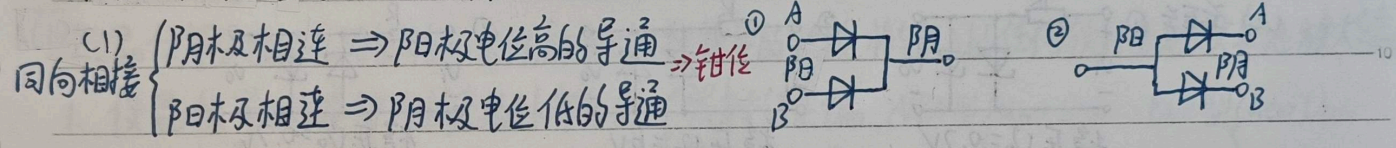 (1)
同向相接
阴极相连 ⇒ 阳极电位高的导通
阳极相连 ⇒ 阴极电位低的导通
⇒钳位
① A
阴
阳
B
② 阳
A
阴
B
10